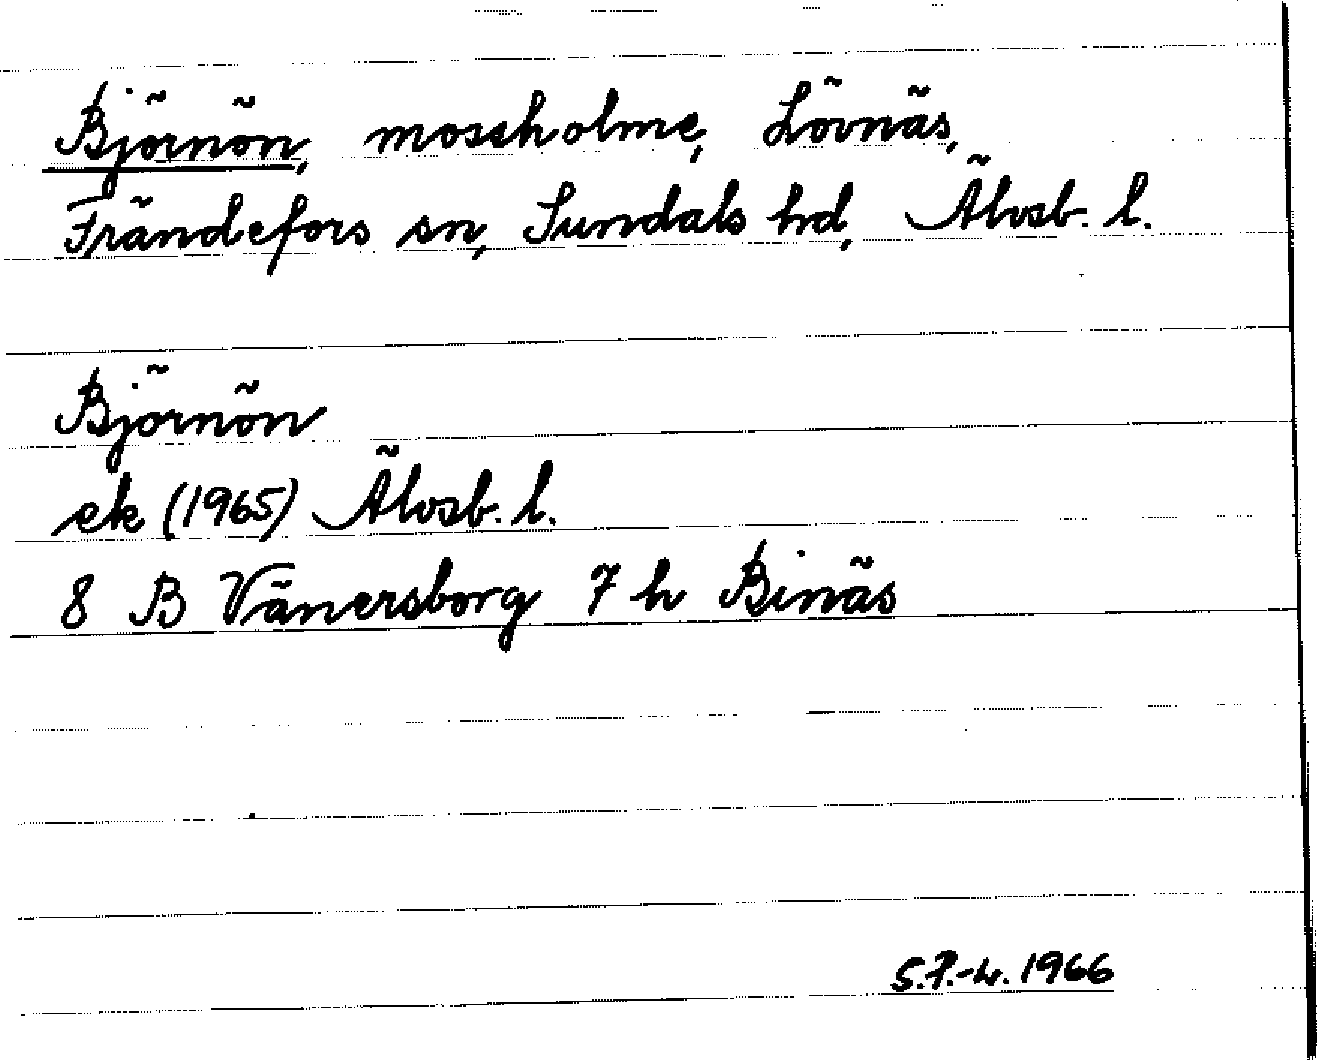 Björnön, mosseholme, Lövnäs,
Frändefors sn, Sundals hd, Älvsb. l.
Björnön
ek (1965) Älvsb. l.
8 B Vänersborg 7 h Binäs
1966